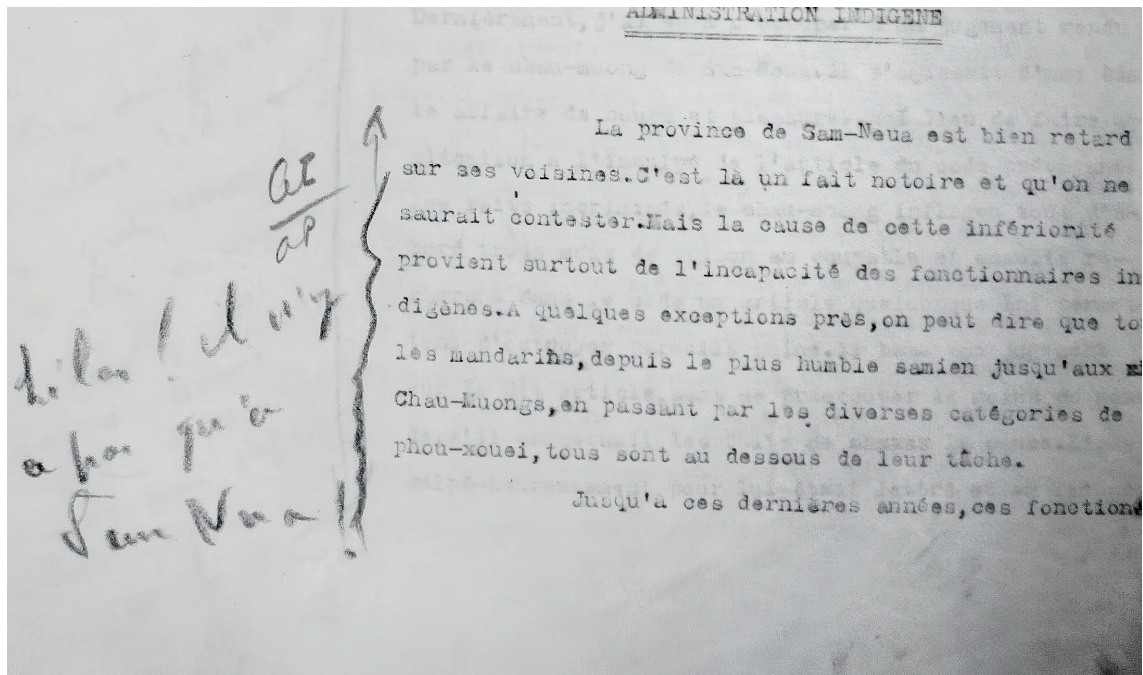 ADMINISTRATION INDIGENE
La province de Sam-Neua est bien retard
sur ses voisines.C'est là un fait notoire et qu'on ne
saurait contester.Mais la cause de cette infériorité
provient surtout de l'incapacité des fonctionnaires in
digènes.A quelques exceptions près,on peut dire que to
les mandarins,depuis le plus humble samien jusqu'aux
Chau-Muongs,en passant par les diverses catégories de
phou-xouei,tous sont au dessous de leur tâche.
Jusqu'à ces dernières années,ces fonction
Hélas ! il n'y
a pas qu'à
Sam Neua !!